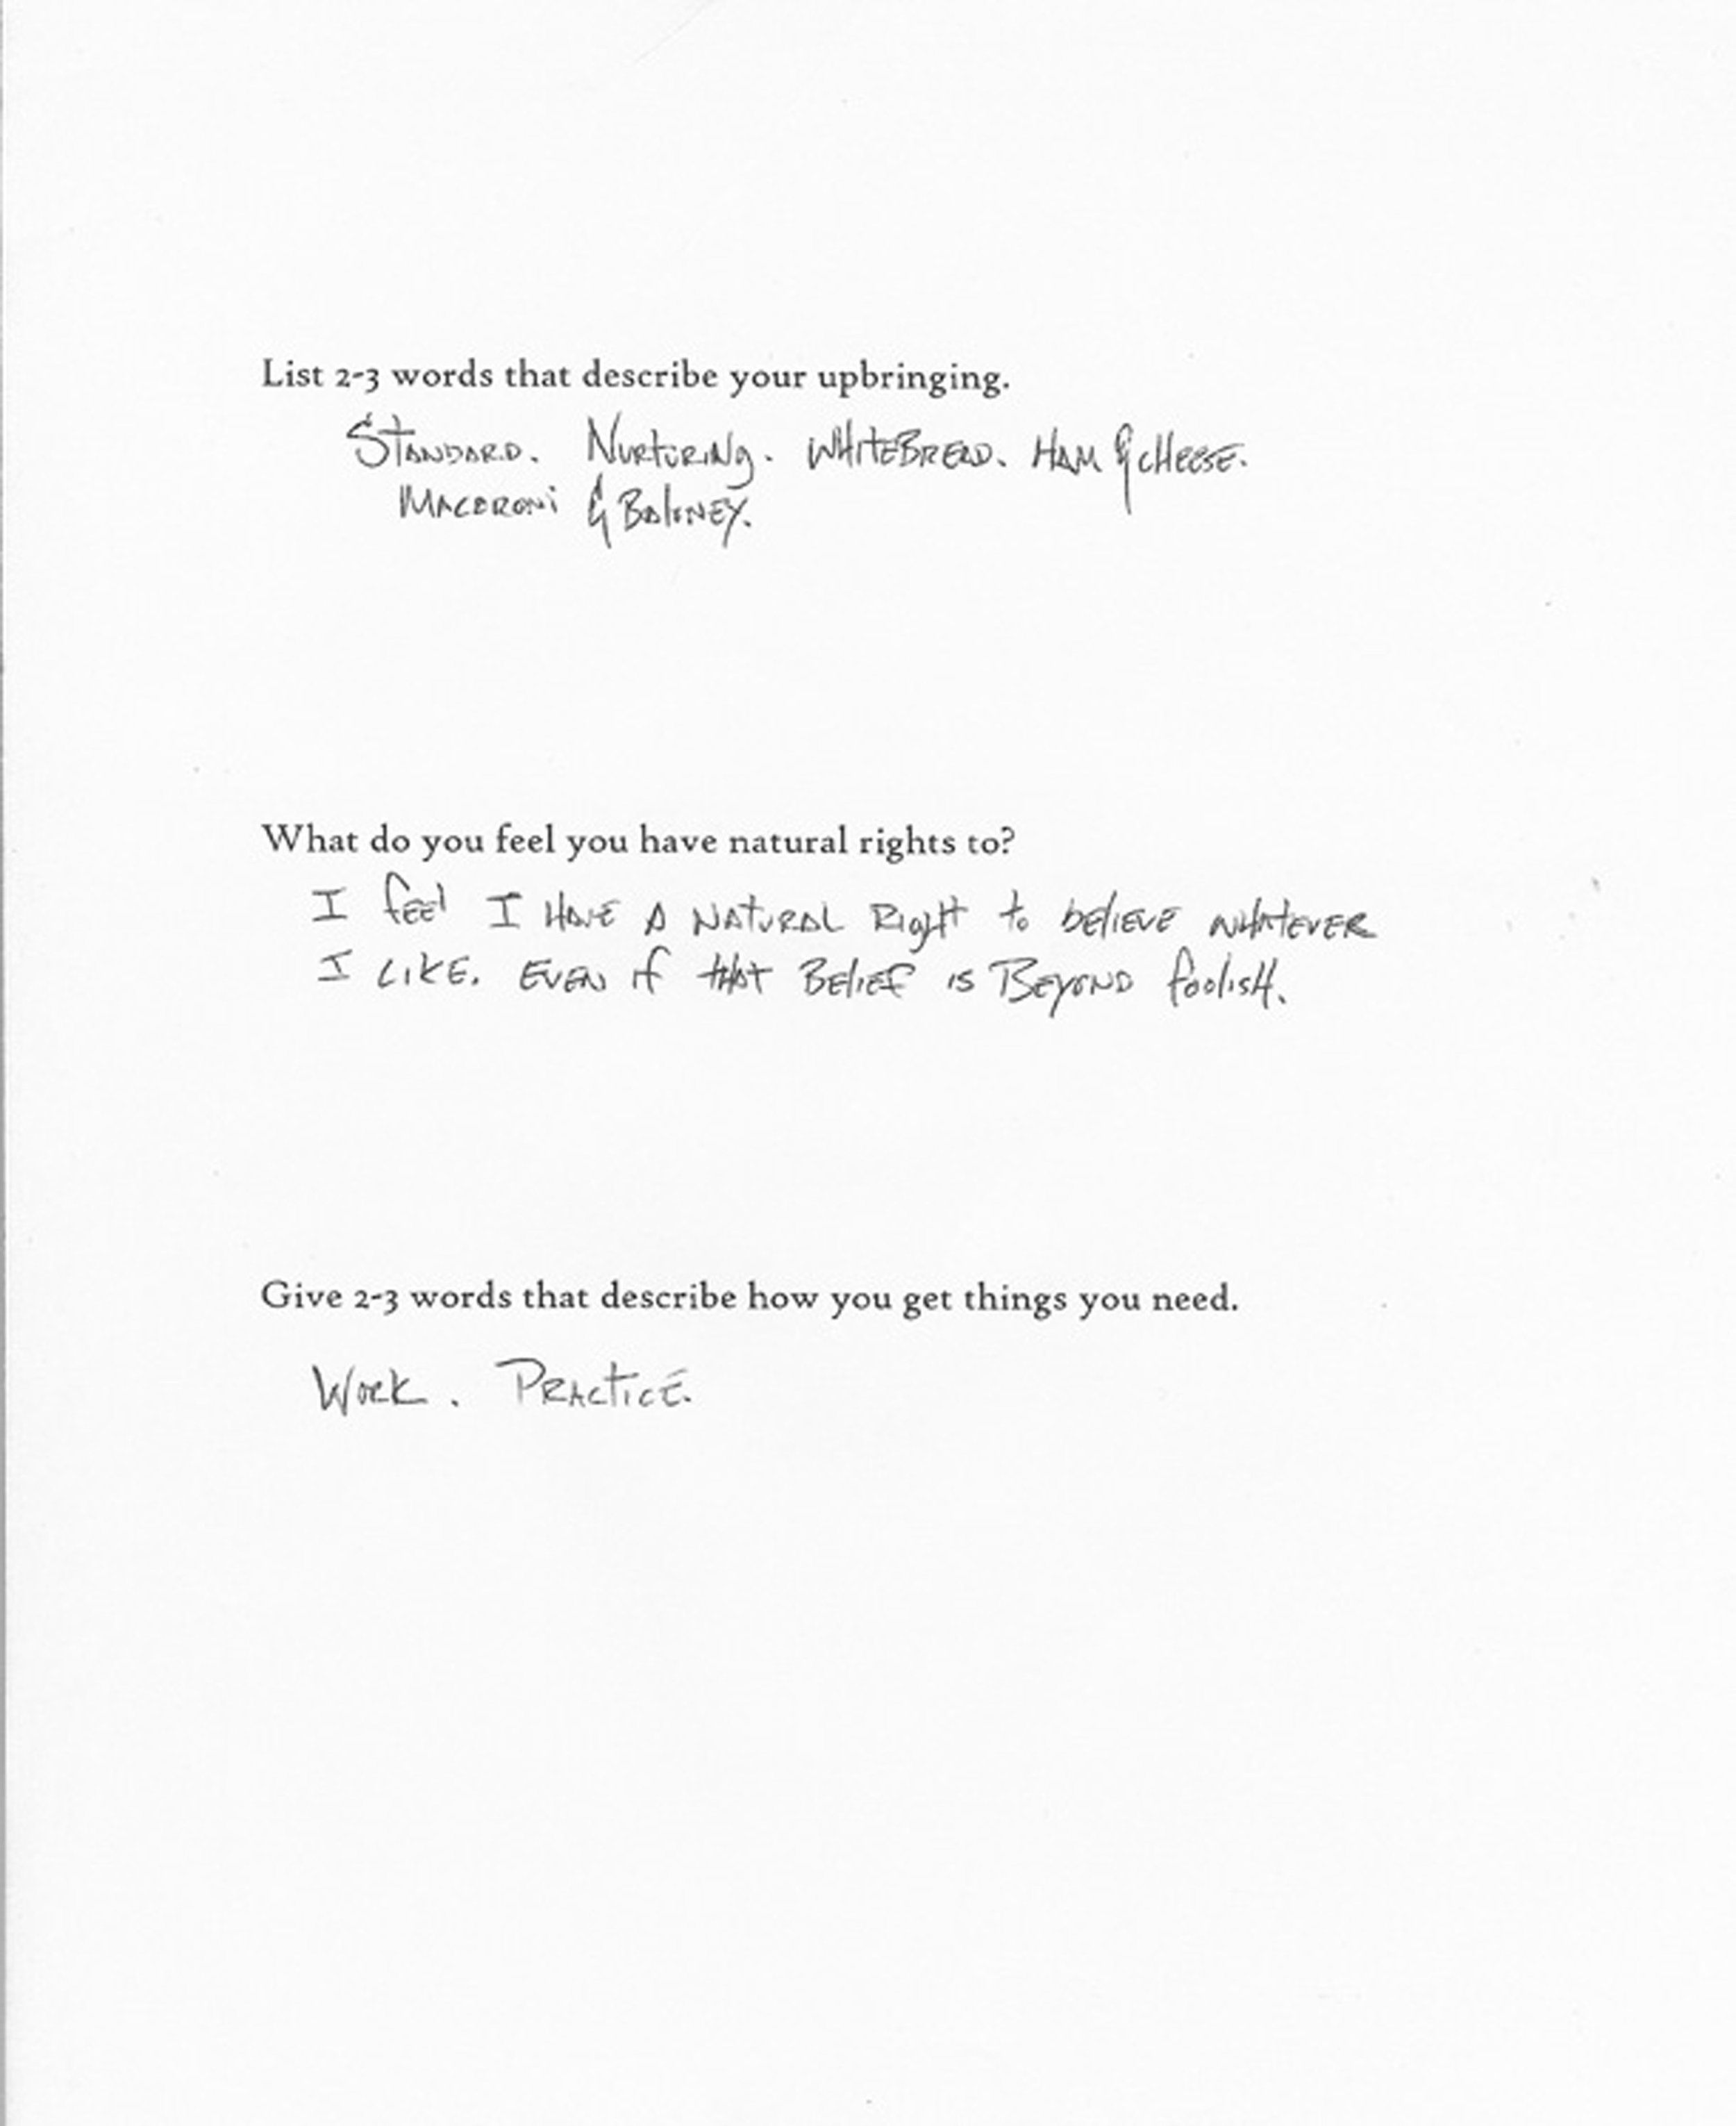 List 2-3 words that describe your upbringing.
Standard. Nurturing. Whitebread. Ham & cheese.
Macaroni & Baloney.
What do you feel you have natural rights to?
I feel I have a natural right to believe whatever
I like. Even if that belief is beyond foolish.
Give 2-3 words that describe how you get things you need.
Work. Practice.